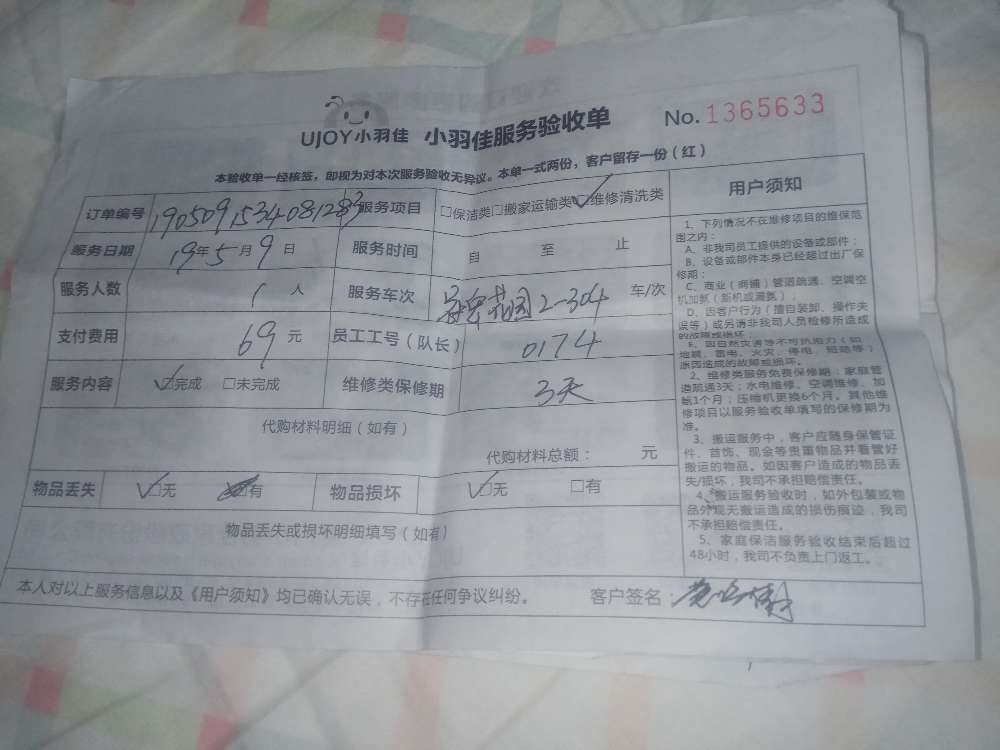 UJOY小羽佳 小羽佳服务验收单 No.1365633
本验收单一经核签，即视为对本次服务验收无异议。本单一式两份，客户留存一份（红）
订单编号 服务项目 □保洁类□搬家运输类☑维修清洗类
服务日期 19年5月9日 服务时间 自 至 止
服务人数 1人 服务车次 花园2-304 车/次
支付费用 69元 员工工号（队长） 0174
服务内容 ☑完成 □未完成 维修类保修期 3天
代购材料明细（如有）
代购材料总额： 元
物品丢失 ☑无 □有 物品损坏 ☑无 □有
物品丢失或损坏明细填写（如有）
本人对以上服务信息以及《用户须知》均已确认无误，不存在任何争议纠纷。 客户签名：
用户须知
1、下列情况不在维修项目的维保范
围之内：
A、非我司员工提供的设备或部件；
B、设备或部件本身已经超过出厂保
修期；
C、商业（商铺）管道疏通、空调空
机加氨（新机或漏氨）；
D、因客户行为（擅自装卸、操作失
误等）或另请非我司人员检修所造成
的故障或损坏；
E、因自然灾害等不可抗拒力（如
地震、雷电、火灾、停电、短路等）
原因造成的故障或损坏。
2、维修类服务免费保修期：家庭管
道疏通3天；水电维修、空调维修、加
氨1个月；压缩机更换6个月。其他维
修项目以服务验收单填写的保修期为
准。
3、搬运服务中，客户应随身保管证
件、首饰、现金等贵重物品并看管好
搬运的物品。如因客户造成的物品丢
失/损坏，我司不承担赔偿责任。
4、搬运服务验收时，如外包装或物
品外观无搬运造成的损伤痕迹，我司
不承担赔偿责任。
5、家庭保洁服务验收结束后超过
48小时，我司不负责上门返工。